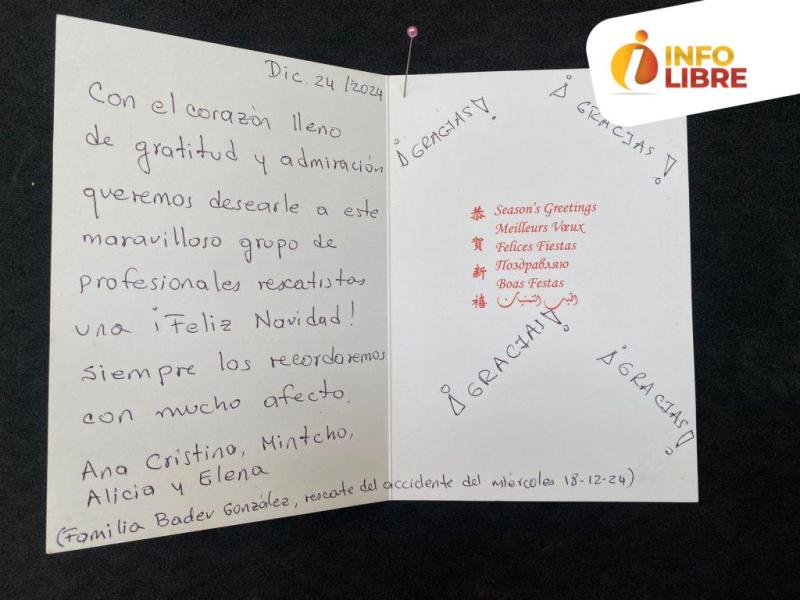 INFO
LIBRE
Dic. 24/2024
Con el corazón lleno
de gratitud y admiración
queremos desearle a este
maravilloso grupo de
profesionales rescatistas
una ¡Feliz Navidad!
Siempre los recordaremos
con mucho afecto.
Ana Cristina, Mintcho,
Alicia y Elena
(Familia Badev González, rescate del accidente del miércoles 18-12-24)
¡GRACIAS!
¡GRACIAS!
恭賀新禧
Season's Greetings
Meilleurs Vœux
Felices Fiestas
Поздравляю
Boas Festas
¡GRACIAS!
¡GRACIAS!